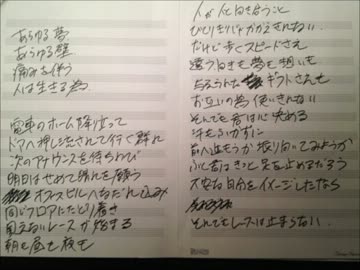 あらゆる夢
あらゆる壁
痛みを伴う
人は生きる為
電車のホーム降り立って
ドアへ押し流されて行く群れ
次のアナウンスを待ちわび
明日はせめて晴れを願う
オフィスビルへなだれ込み
同じフロアにたどり着き
見えないレースが始まる
朝も昼も夜も
人が人と向き合うこと
ひとりきりじゃかなえきれない
だけど歩くスピードさえ
違う向きも夢も想いも
与えられた ギフトさえも
お互いの為 使いきれない
それでも君は 決める
汗をぬぐわずに
前へ進もうか 振り向いてみようか
ふと君はきっと足を止めるだろう
大切な自分をイメージしたなら
それでもレースは止まらない